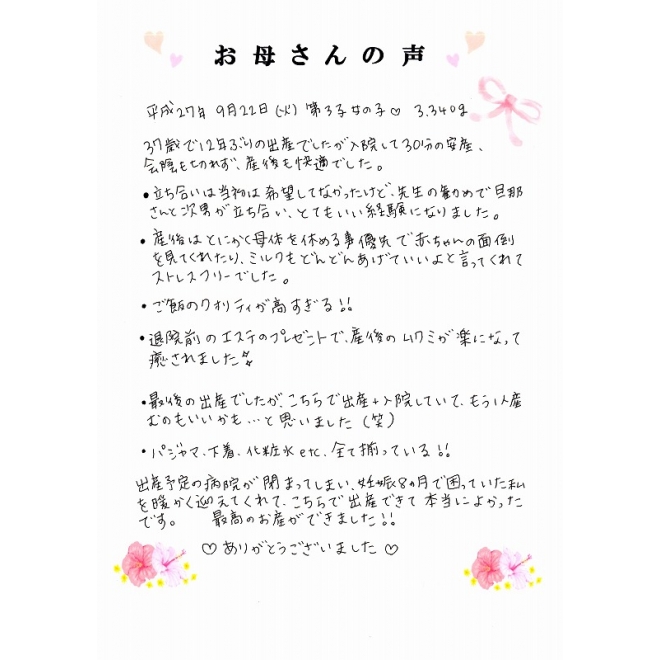 お母さんの声
平成27年 9月22日(火) 第3子女の子♡ 3.340g
37歳で12年ぶりの出産でしたが入院して30分の安産、
会陰も切れず、産後も快適でした。
・立ち合いは当初は希望してなかったけど、先生の勧めで旦那
さんと次男が立ち合い、とてもいい経験になりました。
・産後はとにかく母体を休める事優先で赤ちゃんの面倒
を見てくれたり、ミルクもどんどんあげていいよと言ってくれて
ストレスフリーでした。
・ご飯のクオリティが高すぎる!!
・退院前のエステのプレゼントで、産後のムクミが楽になって
癒されました
・最後の出産でしたが、こちらで出産+入院していて、もう1人産
むのもいいかも…と思いました(笑)
・パジャマ、下着、化粧水etc、全て揃っている!!
出産予定の病院が閉まってしまい、妊娠8ヵ月で困っていた私
を暖かく迎えてくれて、こちらで出産できて本当によかった
です。 最高のお産ができました!!
♡ありがとうございました♡